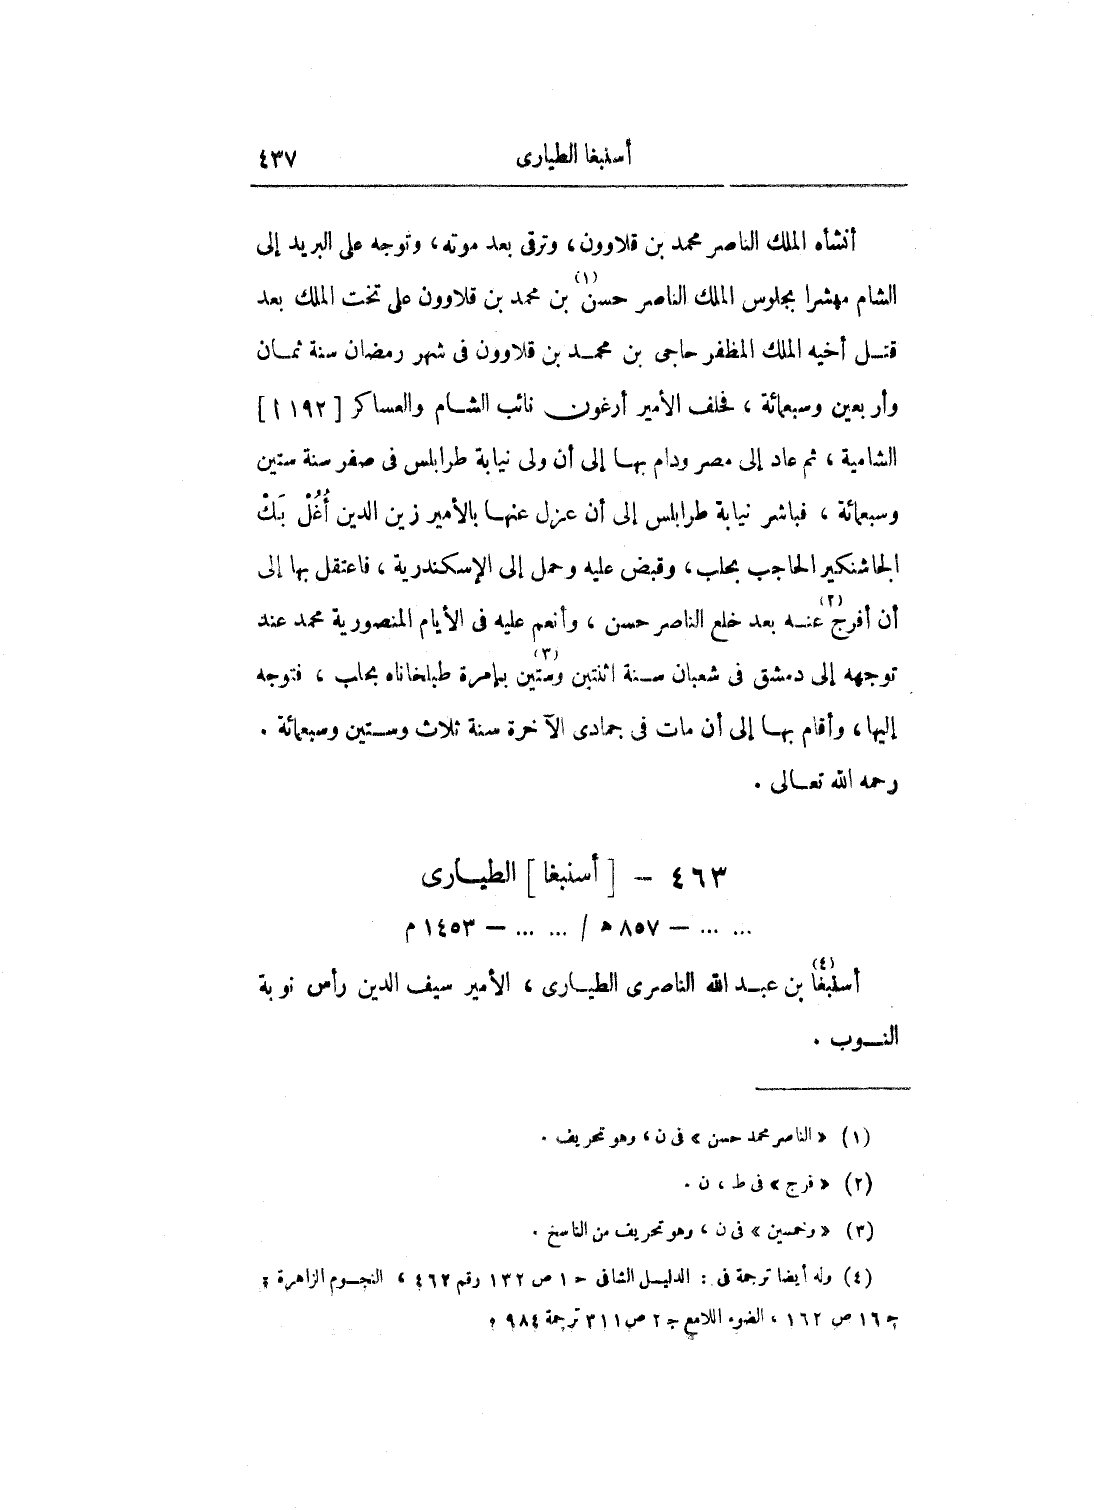 أسنبغا الطيارى ٤٣٧
أنشأه الملك الناصر محمد بن قلاوون، وترقى بعد موته، وتوجه على البريد إلى
الشام مبشرا بجلوس الملك الناصر حسن(١) بن محمد بن قلاوون على تخت الملك بعد
قتل أخيه الملك المظفر حاجى بن محمد بن قلاوون فى شهر رمضان سنة ثمان
وأربعين وسبعمائة، فحلف الأمير أرغون نائب الشام والعساكر [١٩٢ أ]
الشامية، ثم عاد إلى مصر ودام بها إلى أن ولى نيابة طرابلس فى صفر سنة ستين
وسبعمائة، فباشر نيابة طرابلس إلى أن عزل عنها بالأمير زين الدين أُغُلْ بَكْ
الجاشنكير الحاجب بحلب، وقبض عليه وحمل إلى الإسكندرية، فاعتقل بها إلى
أن أفرج(٢) عنه بعد خلع الناصر حسن، وأنعم عليه فى الأيام المنصورية محمد عند
توجهه إلى دمشق فى شعبان سنة اثنتين وستين(٣) بإمرة طبلخاناه بحلب، فتوجه
إليها، وأقام بها إلى أن مات فى جمادى الآخرة سنة ثلاث وستين وسبعمائة.
رحمه الله تعالى.
٤٦٣ – [أسنبغا] الطيارى
... ... – ٨٥٧ ه / ... ... – ١٤٥٣ م
أسنبغا(٤) بن عبد الله الناصرى الطيارى، الأمير سيف الدين رأس نوبة
النوب.
(١) «الناصر محمد حسن» فى ن، وهو تحريف.
(٢) «فرج» فى ط، ن.
(٣) «وخمسين» فى ن، وهو تحريف من الناسخ.
(٤) وله أيضا ترجمة فى: الدليل الشافى ج ١ ص ١٣٢ رقم ٤٦٢، النجوم الزاهرة ؛
ج ١٦ ص ١٦٢، الضوء اللامع ج ٢ ص ٣١١ ترجمة ٩٨٤ ؛